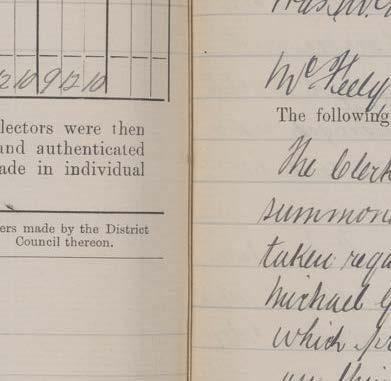 12 10 9 12 10
lectors were then
and authenticated
ade in individual
ers made by the District
Council thereon.
McFeely
The following
The Clerk
summons
taken rega
Michael G
which pr